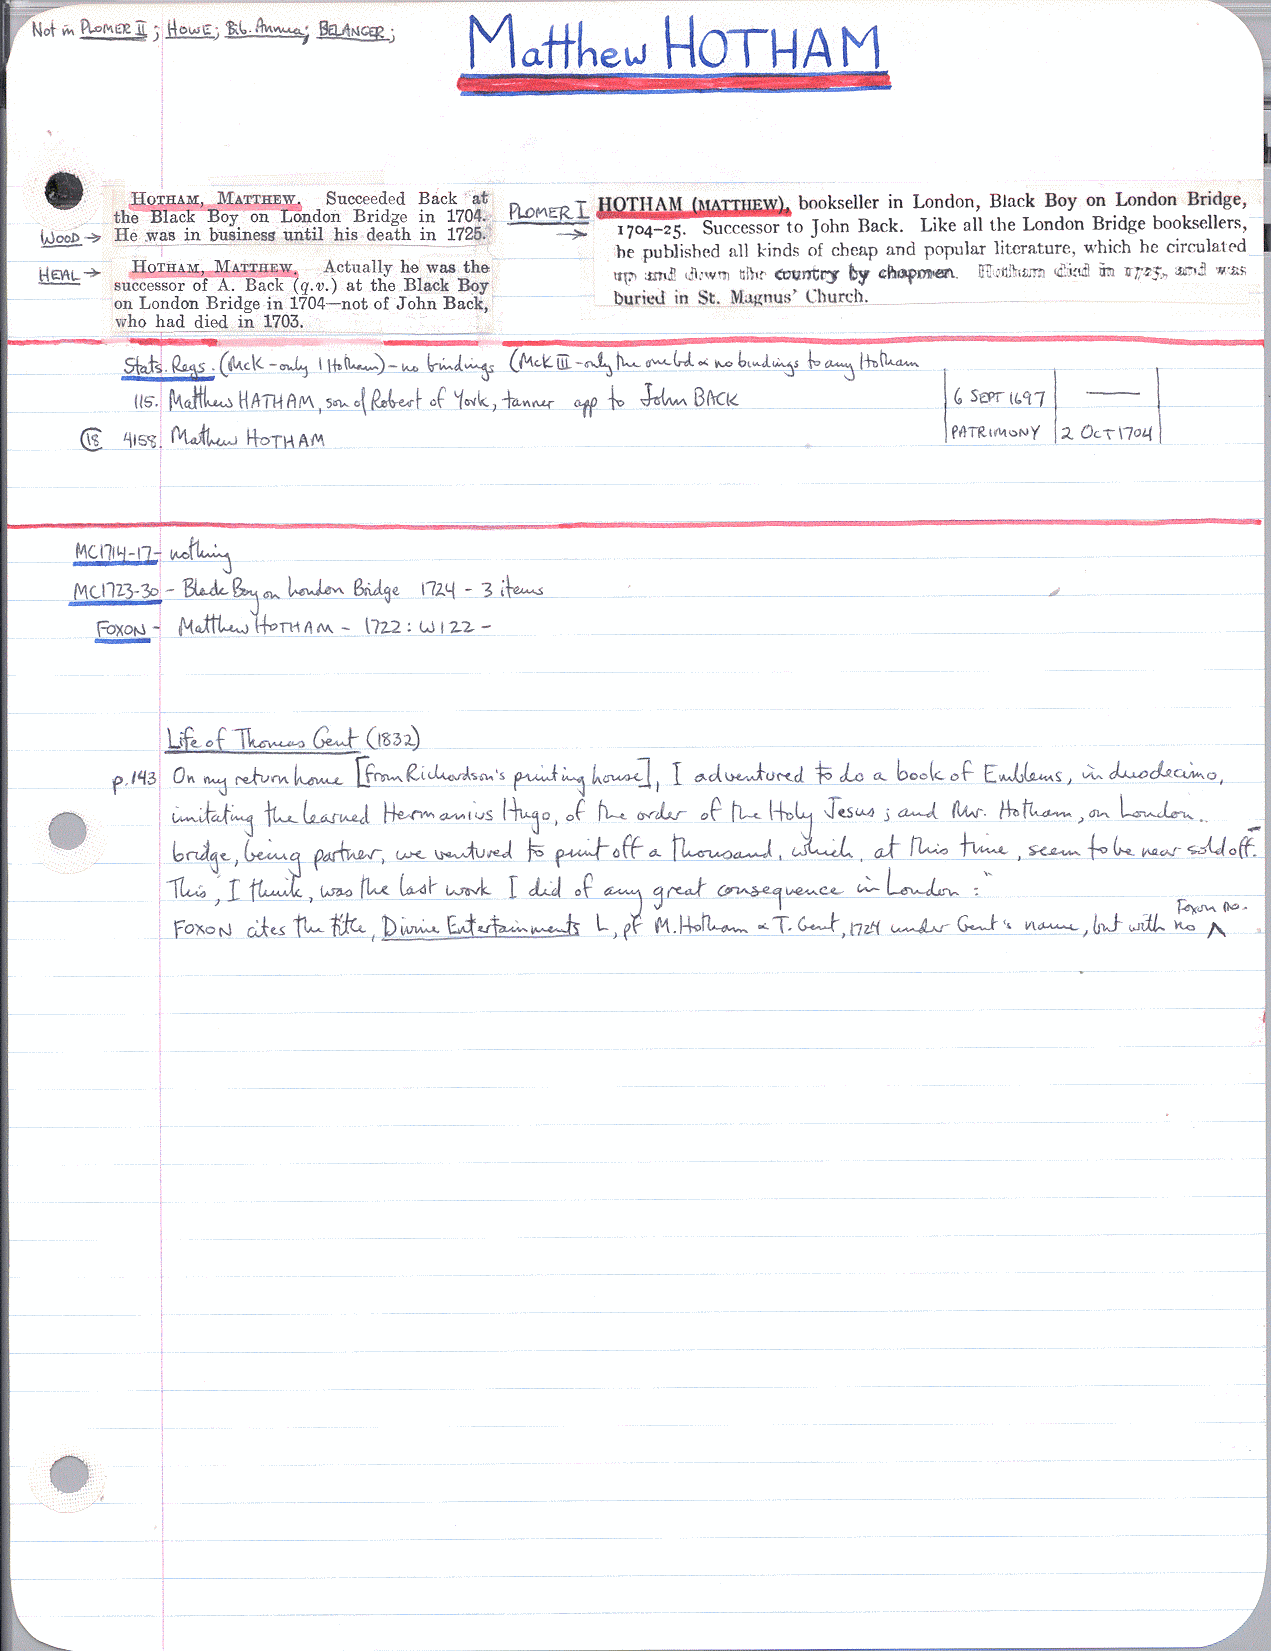 Not in PLOMER II; HOWE; Bib. Annua; BELANGER;
Matthew HOTHAM
HOTHAM, MATTHEW. Succeeded Back at
the Black Boy on London Bridge in 1704.
WOOD → He was in business until his death in 1725.
HEAL → HOTHAM, MATTHEW. Actually he was the
successor of A. Back (q.v.) at the Black Boy
on London Bridge in 1704—not of John Back,
who had died in 1703.
PLOMER I → HOTHAM (MATTHEW), bookseller in London, Black Boy on London Bridge,
1704-25. Successor to John Back. Like all the London Bridge booksellers,
he published all kinds of cheap and popular literature, which he circulated
up and down the country by chapmen. Hotham died in 1725, and was
buried in St. Magnus' Church.
Stats. Regs. (McK - only 1 Hotham) - no bindings (McK III - only the one bd & no bindings to any Hotham
115. Matthew HATHAM, son of Robert of York, tanner app to John BACK 6 SEPT 1697 —
18 4158. Mathew HOTHAM PATRIMONY 2 OCT 1704
MC1714-17 - nothing
MC1723-30 - Black Boy on London Bridge 1724 - 3 items
FOXON - Matthew HOTHAM - 1722: W122 -
Life of Thomas Gent (1832)
p.143 On my return home [from Richardson's printing house], I adventured to do a book of Emblems, in duodecimo,
imitating the learned Hermanius Hugo, of the order of the Holy Jesus; and Mr. Hotham, on London-
bridge, being partner, we ventured to print off a thousand, which, at this time, seem to be near sold off.
This, I think, was the last work I did of any great consequence in London:"
FOXON cites the title, Divine Entertainments L, pf M. Hotham & T. Gent, 1724 under Gent's name, but with no ^ Foxon no.